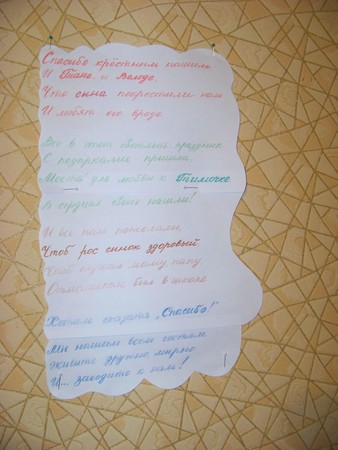 Спасибо крёстным нашим
И Тане и Володе,
Что сына покрестили нам
И любят его вроде
Все в этот светлый праздник
С подарками пришли,
Места для любви к Тимочке
В сердцах своих нашли!
И все нам пожелали,
Чтоб рос сынок здоровый
Чтоб слушал маму папу
Отличником был в школе
Хотим сказать „Спасибо!"
Мы нашим всем гостям
Живите дружно, мирно
И... заходите к нам!